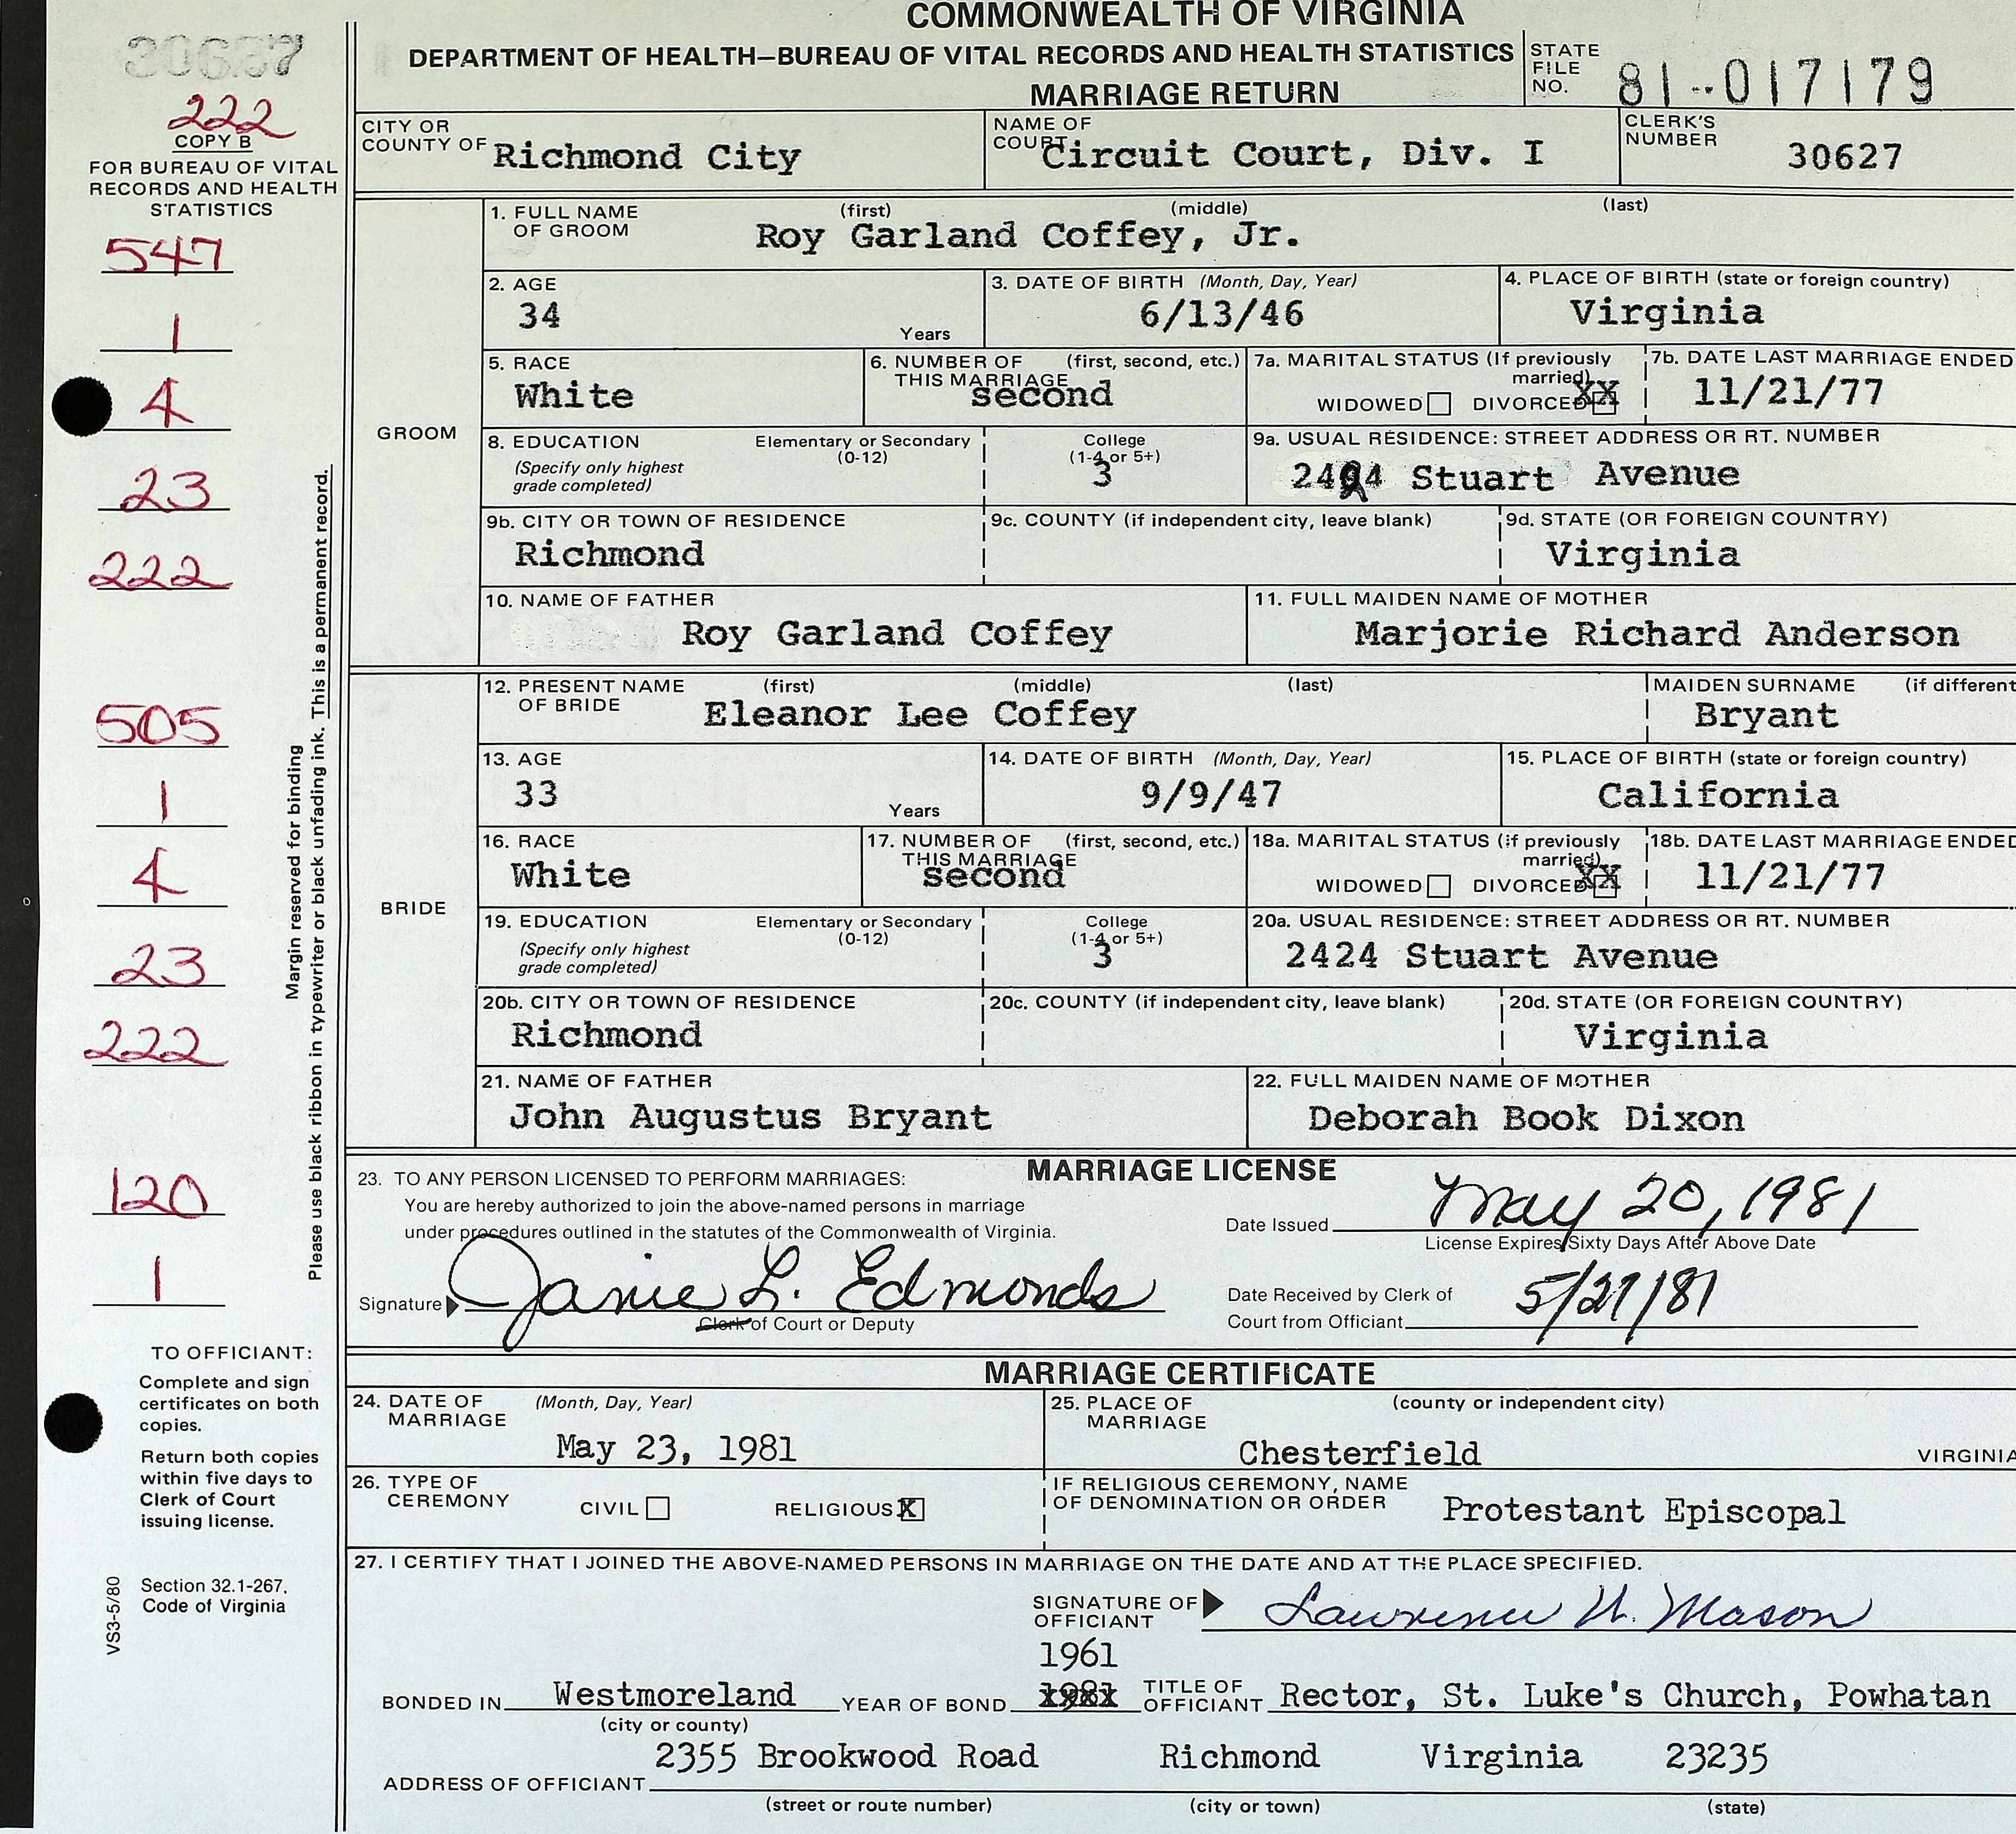 COMMONWEALTH OF VIRGINIA
DEPARTMENT OF HEALTH—BUREAU OF VITAL RECORDS AND HEALTH STATISTICS
MARRIAGE RETURN
STATE FILE NO. 81-017179
222
COPY B
FOR BUREAU OF VITAL
RECORDS AND HEALTH
STATISTICS
547
1
4
23
222
505
1
4
23
222
120
1
Margin reserved for binding
Please use black ribbon in typewriter or black unfading ink. This is a permanent record.
TO OFFICIANT:
Complete and sign
certificates on both
copies.
Return both copies
within five days to
Clerk of Court
issuing license.
Section 32.1-267,
Code of Virginia
VS3-5/80
CITY OR COUNTY OF Richmond City
NAME OF COURT Circuit Court, Div. I
CLERK'S NUMBER 30627
GROOM
1. FULL NAME OF GROOM (first) (middle) (last)
Roy Garland Coffey, Jr.
2. AGE 34 Years
3. DATE OF BIRTH (Month, Day, Year) 6/13/46
4. PLACE OF BIRTH (state or foreign country) Virginia
5. RACE White
6. NUMBER OF THIS MARRIAGE (first, second, etc.) second
7a. MARITAL STATUS (If previously married) WIDOWED DIVORCED XX
7b. DATE LAST MARRIAGE ENDED 11/21/77
8. EDUCATION (Specify only highest grade completed) Elementary or Secondary (0-12) College (1-4 or 5+) 3
9a. USUAL RESIDENCE: STREET ADDRESS OR RT. NUMBER Stuart Avenue
9b. CITY OR TOWN OF RESIDENCE Richmond
9c. COUNTY (if independent city, leave blank)
9d. STATE (OR FOREIGN COUNTRY) Virginia
10. NAME OF FATHER Roy Garland Coffey
11. FULL MAIDEN NAME OF MOTHER Marjorie Richard Anderson
BRIDE
12. PRESENT NAME OF BRIDE (first) (middle) (last) Eleanor Lee Coffey
MAIDEN SURNAME (if different Bryant
13. AGE 33 Years
14. DATE OF BIRTH (Month, Day, Year) 9/9/47
15. PLACE OF BIRTH (state or foreign country) California
16. RACE White
17. NUMBER OF THIS MARRIAGE (first, second, etc.) second
18a. MARITAL STATUS (if previously married) WIDOWED DIVORCED XX
18b. DATE LAST MARRIAGE ENDED 11/21/77
19. EDUCATION (Specify only highest grade completed) Elementary or Secondary (0-12) College (1-4 or 5+) 3
20a. USUAL RESIDENCE: STREET ADDRESS OR RT. NUMBER 2424 Stuart Avenue
20b. CITY OR TOWN OF RESIDENCE Richmond
20c. COUNTY (if independent city, leave blank)
20d. STATE (OR FOREIGN COUNTRY) Virginia
21. NAME OF FATHER John Augustus Bryant
22. FULL MAIDEN NAME OF MOTHER Deborah Book Dixon
MARRIAGE LICENSE
23. TO ANY PERSON LICENSED TO PERFORM MARRIAGES:
You are hereby authorized to join the above-named persons in marriage
under procedures outlined in the statutes of the Commonwealth of Virginia.
Date Issued May 20, 1981
License Expires Sixty Days After Above Date
Signature Janie L. Edmonds
Clerk of Court or Deputy
Date Received by Clerk of
Court from Officiant 5/27/81
MARRIAGE CERTIFICATE
24. DATE OF MARRIAGE (Month, Day, Year) May 23, 1981
25. PLACE OF MARRIAGE (county or independent city) Chesterfield VIRGINIA
26. TYPE OF CEREMONY CIVIL RELIGIOUS X
IF RELIGIOUS CEREMONY, NAME OF DENOMINATION OR ORDER Protestant Episcopal
27. I CERTIFY THAT I JOINED THE ABOVE-NAMED PERSONS IN MARRIAGE ON THE DATE AND AT THE PLACE SPECIFIED.
SIGNATURE OF OFFICIANT Lawrence W. Mason
1961
BONDED IN Westmoreland YEAR OF BOND 1981 TITLE OF OFFICIANT Rector, St. Luke's Church, Powhatan
(city or county)
2355 Brookwood Road Richmond Virginia 23235
ADDRESS OF OFFICIANT
(street or route number) (city or town) (state)